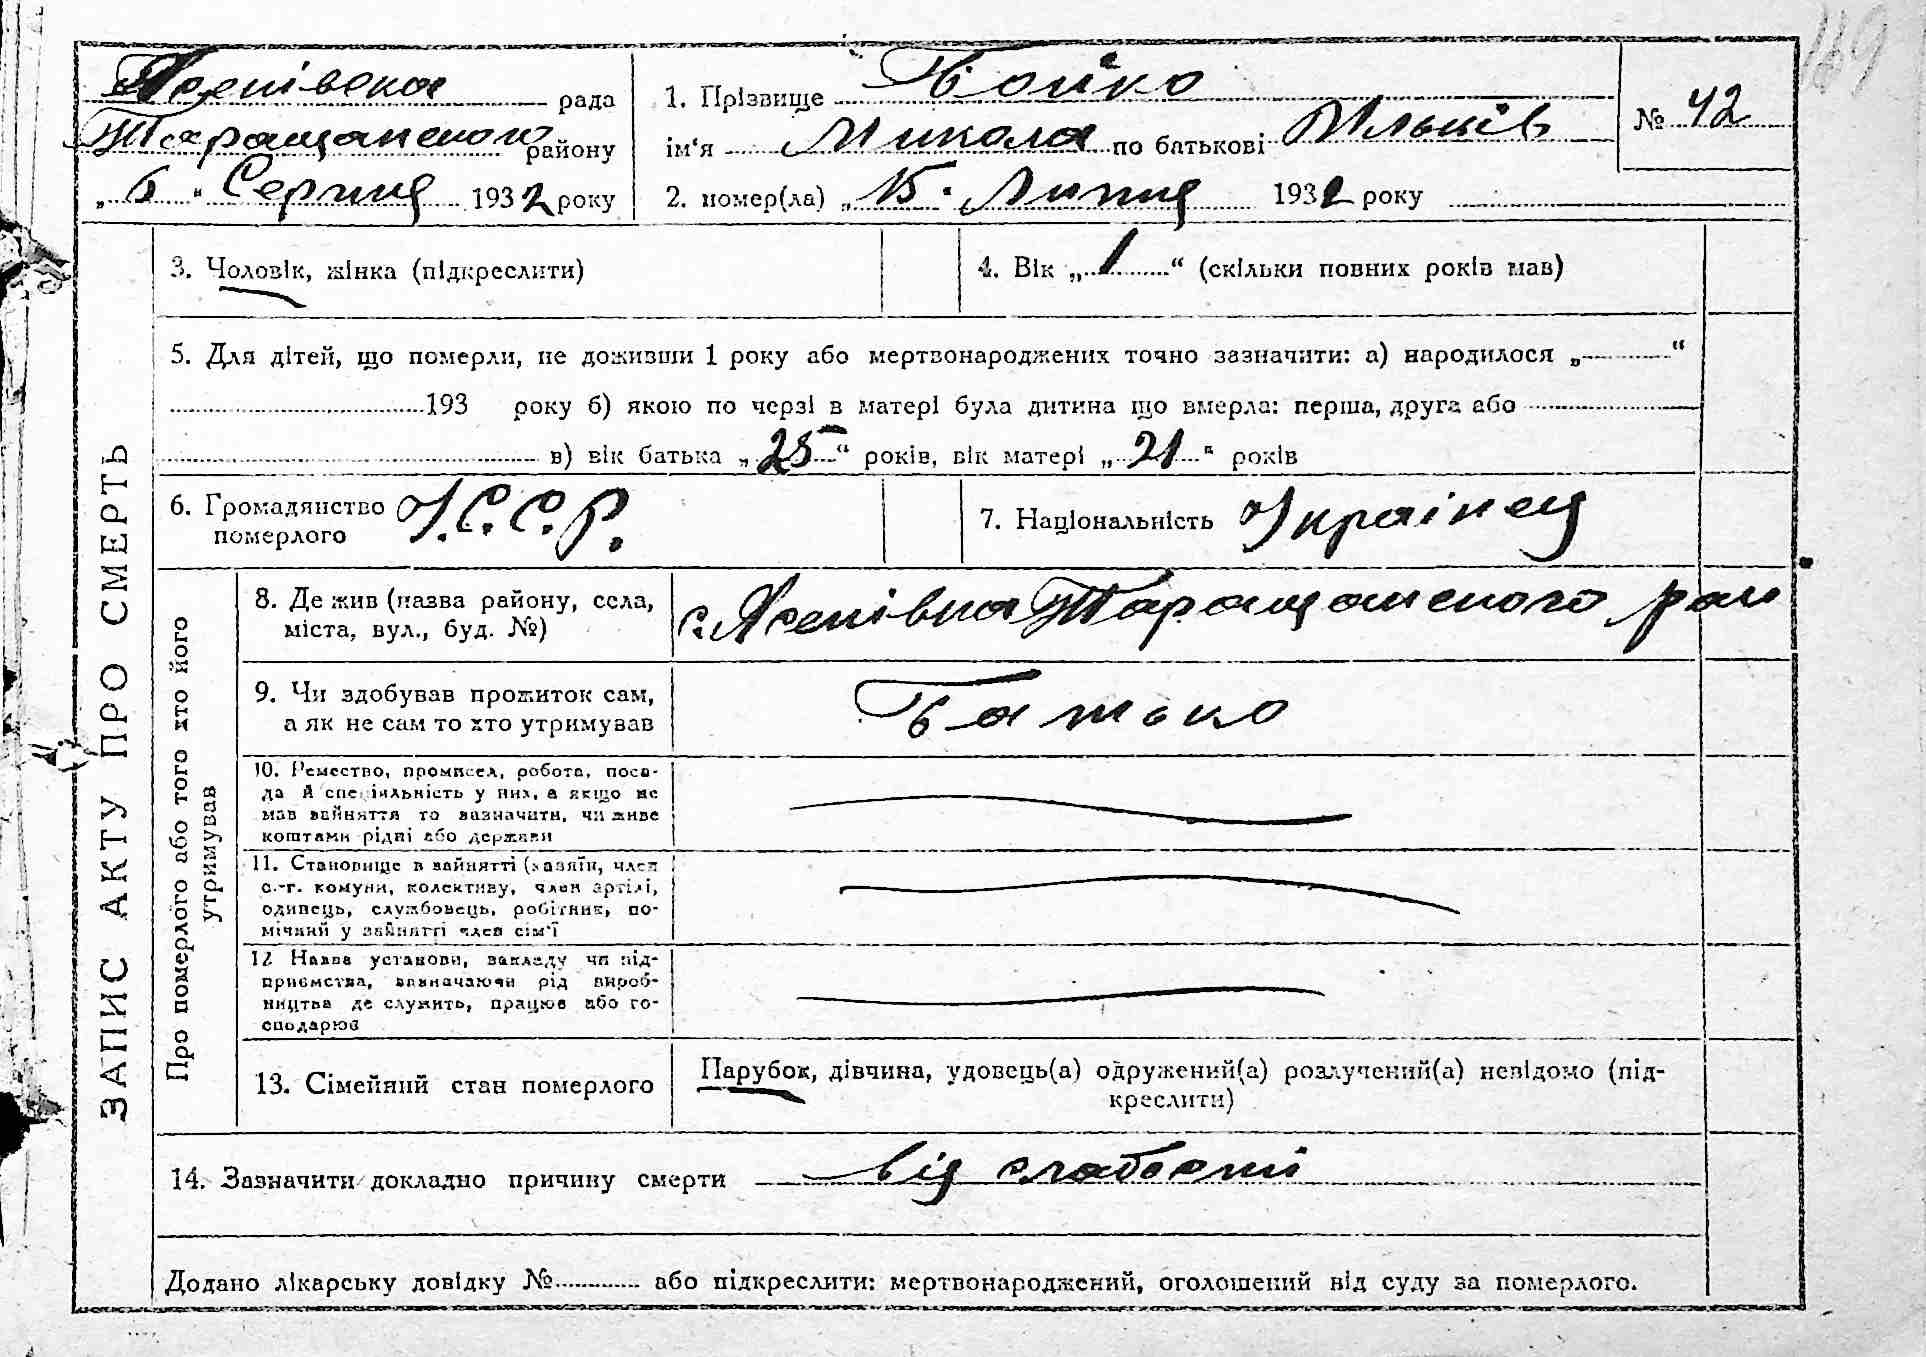 169
Ясенівська рада
Таращанського району
„6“ Серпня 1932 року
1. Прізвище Бойко
ім'я Микола по батькові Ільків
2. помер(ла) „15. Липня 1932 року
№ 42
ЗАПИС АКТУ ПРО СМЕРТЬ
3. Чоловік, жінка (підкреслити)
4. Вік „1“ (скільки повних років мав)
5. Для дітей, що померли, не доживши 1 року або мертвонароджених точно зазначити: а) народилося „—“
193 року б) якою по черзі в матері була дитина що вмерла: перша, друга або
в) вік батька „25“ років, вік матері „21“ років
6. Громадянство
померлого У.С.С.Р.
7. Національність Українец
Про померлого або того хто його
утримував
8. Де жив (назва району, села,
міста, вул., буд. №)
с. Ясенівка Таращанського рай
9. Чи здобував прожиток сам,
а як не сам то хто утримував
Батько
10. Ремество, промисел, робота, поса-
да й спеціяльність у них, а якщо не
мав зайняття то зазначити, чи живе
коштами рідні або держави
11. Становище в зайнятті (хазяїн, член
с.-г. комуни, колективу, член артілі,
одинець, службовець, робітник, по-
мічний у зайнятті член сім'ї
12 Назва установи, закладу чи під-
приємства, зазначаючи рід вироб-
ництва де служить, працює або го-
сподарює
13. Сімейний стан померлого
Парубок, дівчина, удовець(а) одружений(а) розлучений(а) невідомо (під-
креслити)
14. Зазначити докладно причину смерти від слабости
Додано лікарську довідку № або підкреслити: мертвонароджений, оголошений від суду за померлого.